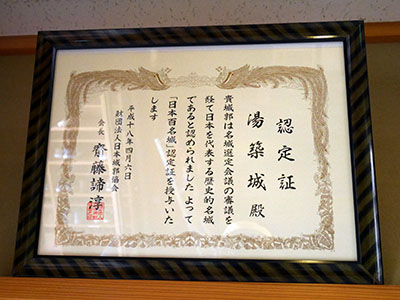 認定証
湯築城殿
貴城郭は名城選定会議の審議を
経て日本を代表する歴史的名城
であると認められました よって
「日本百名城」認定証を授与いた
します
平成十八年四月六日
財団法人日本城郭協会
会長 齋藤諦淳